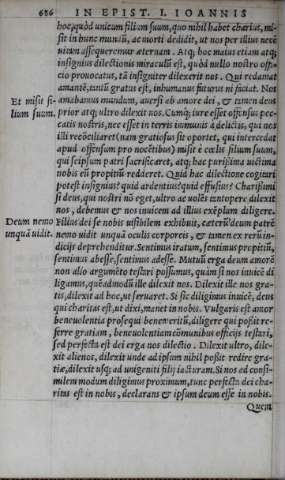 686 IN EPIST. I. IOANNIS
hoc, quòd unicum filium suum, quo nihil habet charius, mi-
sit in hunc mundũ, ac morti dedidit, ut nos per illius necẽ
uitam assequeremur æternam. Atq; hoc maius etiam atq;
insignius dilectionis miraculũ est, quòd nullo nostro offi-
cio prouocatus, tã insigniter dilexerit nos. Qui redamat
amantẽ, tantũ gratus est, inhumanus futurus ni faciat. Nos
Et misit fi-
lium suum.
amabamus mundum, auersi ab amore dei, & tamen deus
prior atq; ultro dilexit nos. Cumq; iure esset offensus pec-
catis nostris, nec esset in terris immunis à delictis, qui nos
illi recõciliaret (nam gratiosus sit oportet, qui intercedat
apud offensum pro nocẽtibus) misit è cœlis filium suum,
qui seipsum patri sacrificaret, atq; hac purissima uictima
nobis eũ propitiũ redderet. Quid hac dilectione cogitari
potest insignius? quid ardentius? quid effusius? Charissimi
si deus, qui nostri nõ eget, ultro ac uolẽs tantopere dilexit
nos, debemus & nos inuicem ad illius exẽplum diligere.
Deum nemo
unquã uidit.
Filius dei se nobis uisibilem exhibuit, cæterũ deum patrẽ
nemo uidit unquã oculis corporeis, & tamen ex rerũ in-
dicijs deprehenditur. Sentimus iratum, sentimus propitiũ,
sentimus abesse, sentimus adesse. Mutuũ erga deum amorẽ
non alio argumẽto testari possumus, quàm si nos inuicẽ di
ligamus, quẽadmodũ ille dilexit nos. Dilexit ille nos gra-
tis, dilexit ad hoc, ut seruaret. Si sic diligimus inuicẽ, deus
qui charitas est, ut dixi, manet in nobis. Vulgaris est amor
beneuolentia prosequi benemeritũ, diligere qui possit re-
ferre gratiam, beneuolentiam cõmunibus officijs testari,
sed perfecta est dei erga nos dilectio. Dilexit ultro, dile-
xit alienos, dilexit unde ad ipsum nihil posset redire gra-
tiæ, dilexit usq; ad unigeniti filij iacturam. Si nos ad consi-
milem modum diligimus proximum, tunc perfecta dei cha-
ritas est in nobis, declarans & ipsum deum esse in nobis.
Quem